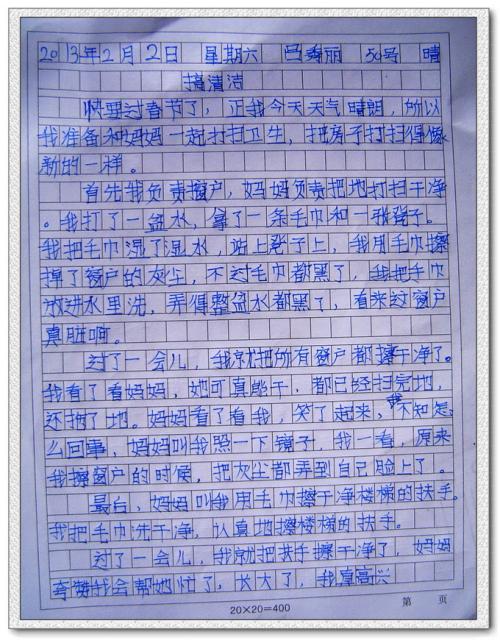 2013年2月2日 星期六 吕秀丽 50号 晴
搞清洁
快要过春节了，正我今天天气晴朗，所以
我准备和妈妈一起打扫卫生，把房子打扫得像
新的一样。
首先我负责窗户，妈妈负责把地打扫干净
。我打了一盆水，拿了一条毛巾和一张凳子。
我把毛巾湿了湿水，站上凳子上，我用毛巾擦
掉了窗户的灰尘，不过毛巾都黑了，我把毛巾
放进水里洗，弄得整盆水都黑了，看来这窗户
真脏啊。
过了一会儿，我就把所有窗户都擦干净了。
我看了看妈妈，她可真能干，都已经扫完地，
还拖了地。妈妈看了看我，笑了起来，我不知怎
么回事，妈妈叫我照一下镜子，我一看，原来
我擦窗户的时候，把灰尘都弄到自己脸上了。
最后，妈妈叫我用毛巾擦干净楼梯的扶手。
我把毛巾洗干净，认真地擦楼梯的扶手。
过了一会儿，我就把扶手擦干净了，妈妈
夸赞我会帮她忙了，长大了，我真高兴
20×20=400
第 页